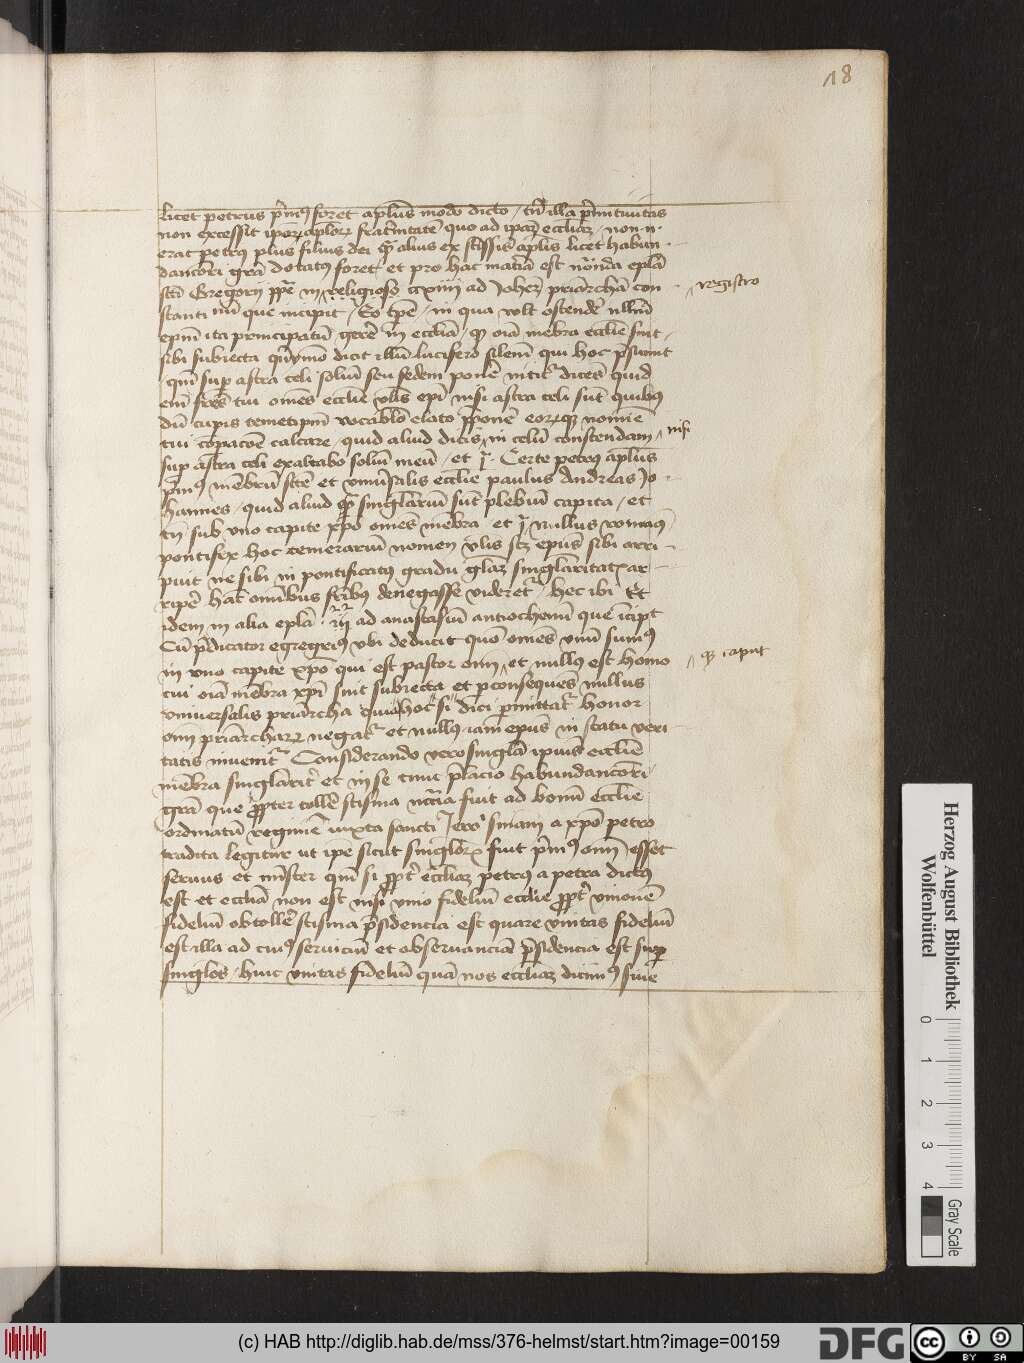 18
licet petrus p̄mꝰ foret aplūs modo dicto / tn̄ illa p̄mitiuitas
non excessit ip̄oꝝ aplōꝝ fraternitatē quo ad ip̄aꝫ ecclīaꝫ / non n̄
erat petrus plus filius dei qͣ alius ex stissīs aplīs licet habun
dancōri grā dotatus foret et pro hac mat̄ia est notanda eplā
stī Gregorij ppē in religioso ad Johēꝫ priārchā con
registro
stanti nū que incipit / Eo tp̄e / in qua volt ostendē̄ nllm̄
ep̄m ita principatū gerē in ecclīa / qꝫ oīa mēbra ecclīe sint
sibi subiecta qn̄ymo dicit illū lucifero silem̄ qui hoc p̄sumit
qm̄ suꝑ astra celi soliū seu sedem ponē nitit̄ dicēs quid
em̄ frēs tui omēs ecclīe vlīs ep̄i nisi astra celi sūt quibus
dū cupis temetip̄m vocablō elato p̄ponē eoꝝqꝫ nomē
tui cōpacōe calcare / quid aliud dicis in celū conscendam /
nisi
suꝑ astra celi exaltabo soliū meū / et jͣ. Certe petrus aplūs
p̄mꝰ mēbrū scē et vniu͛salis ecclīe paulus Andreas Jo
hannes / quid aliud qͣ singlariū sūt plebiū capita / et
tn̄ sub vno capite xp̄o omēs mēbra / et jͣ Nullus romanꝰ
pontifex hoc temerariū nomen vlīs scꝫ ep̄us sibi arri
puit ne sibi in pontificatus gradu glāꝫ singlaritatꝭ ar
ripē hāc omībus frībus denegasse videret̄ / hec ibi
idem in alia eplā ad anastasiū antiochenū que īcipit
Cū p̄dicator egregius vbi deducit quō omēs vnū sumꝰ
in vno capite xp̄o qui est pastor om̄ et nullus est homo
qꝫ caput
cui oīa mēbra xp̄i sint subiecta et ꝑ consequēs nullus
vniuersalis priārcha quia hoc si dici ꝑmittat̄ honor
om̄ priārchaꝝ negat̄ et nullus iam ep̄us in statu veri
tatis inuenit̄ Considerando vero singlā ip̄ius ecclīe
mēbra singlarit̄ et in se tunc p̄lacio habundancōri
grā que ꝓpter tollē scisma nccīa fuit ad bonū ecclīe
ordinatū regimē iuxta sancti Jero smam a xp̄o petro
tradita legitur ut ip̄e sicut singloꝝ fuit p̄mꝰ om̄ esset
seruus et mīster qm̄ si ꝓpt̄ ecclīaꝫ petrus a petra dictus
est et ecclīa non est nisi vnio fideliū ecclīe ꝓpt̄ vnionē
fideliū ob tollē scisma p̄sidencia est quare vnitas fideliū
est illa ad cuiꝰ seruiciū et obseruanciā p̄sidencia est suꝑ
singlos / huic vnitas fideliū quā nos ecclīaꝫ dicimꝰ siue
Herzog August Bibliothek
Wolfenbüttel
0 1 2 3 4
Gray Scale
(c) HAB http://diglib.hab.de/mss/376-helmst/start.htm?image=00159
DFG
cc BY SA